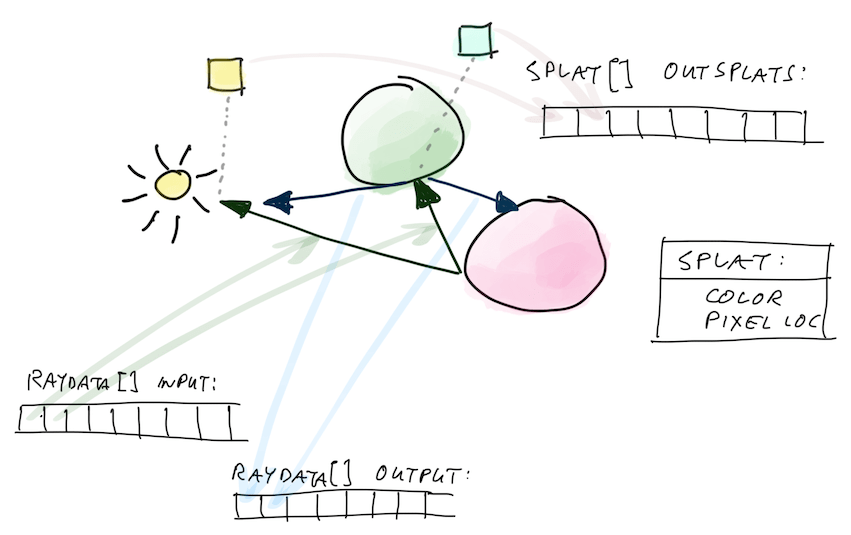 SPLAT[] OUTSPLATS:
SPLAT:
COLOR
PIXEL LOC
RAYDATA[] INPUT:
RAYDATA[] OUTPUT: